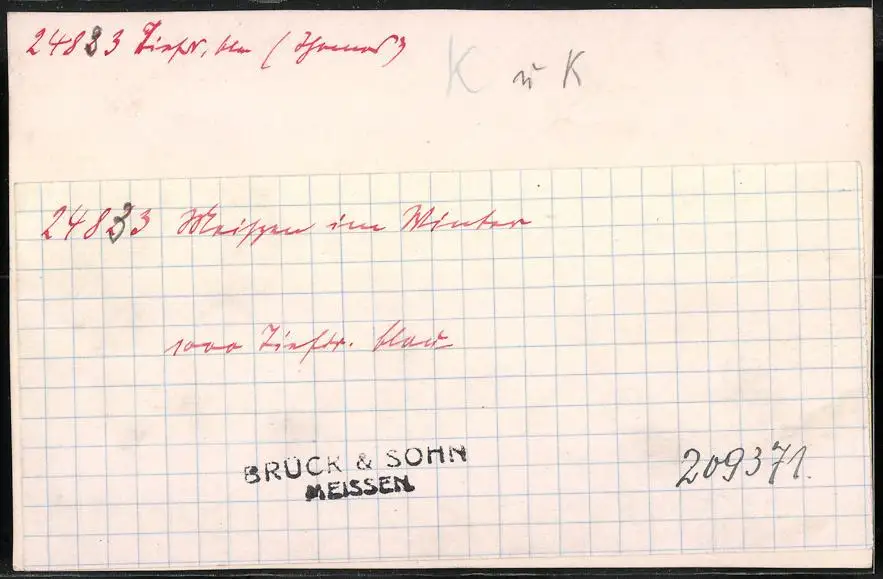 24833 Tiefdr. blau (Thomas)
K u K
24833 Meißen im Winter
1000 Tiefdr. blau
BRÜCK & SOHN
MEISSEN
209371.